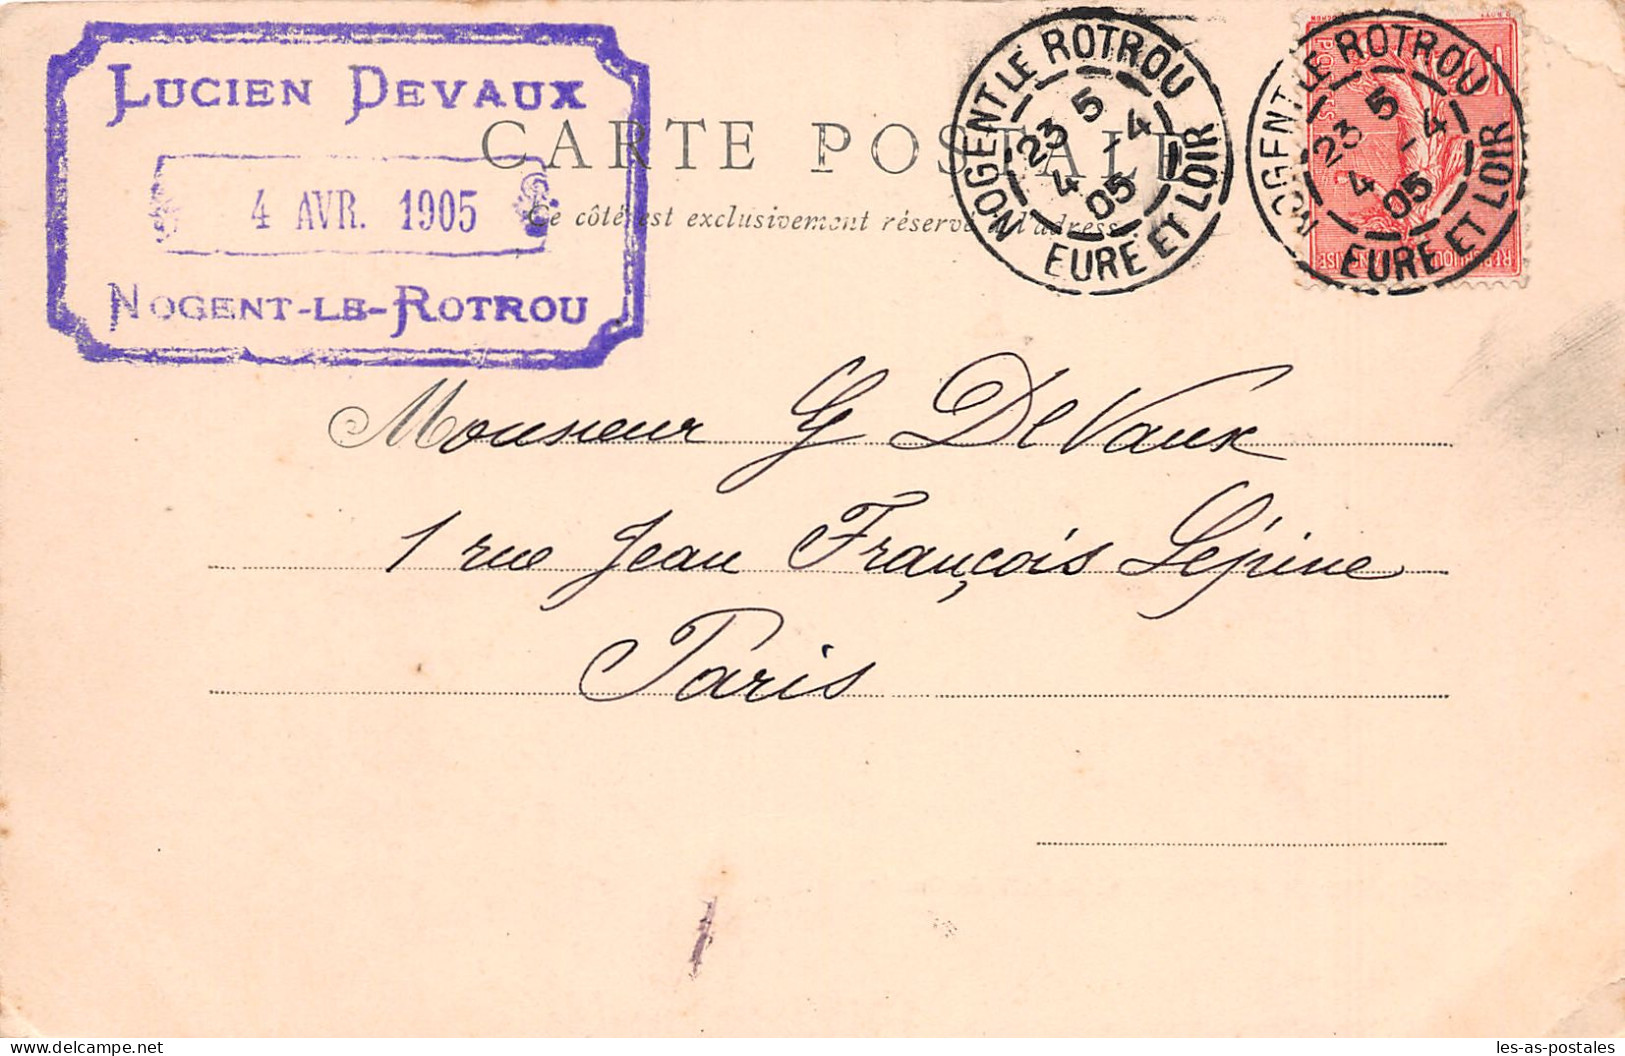 LUCIEN DEVAUX
4 AVR. 1905
NOGENT-LE-ROTROU
CARTE POSTALE
Ce côté est exclusivement réservé à l'adresse
NOGENT LE ROTROU
23 5 4 -4 05
EURE ET LOIR
NOGENT LE ROTROU
23 5 4 -4 05
EURE ET LOIR
Monsieur G DeVaux
1 rue Jean François Lépine
Paris
les-as-postales